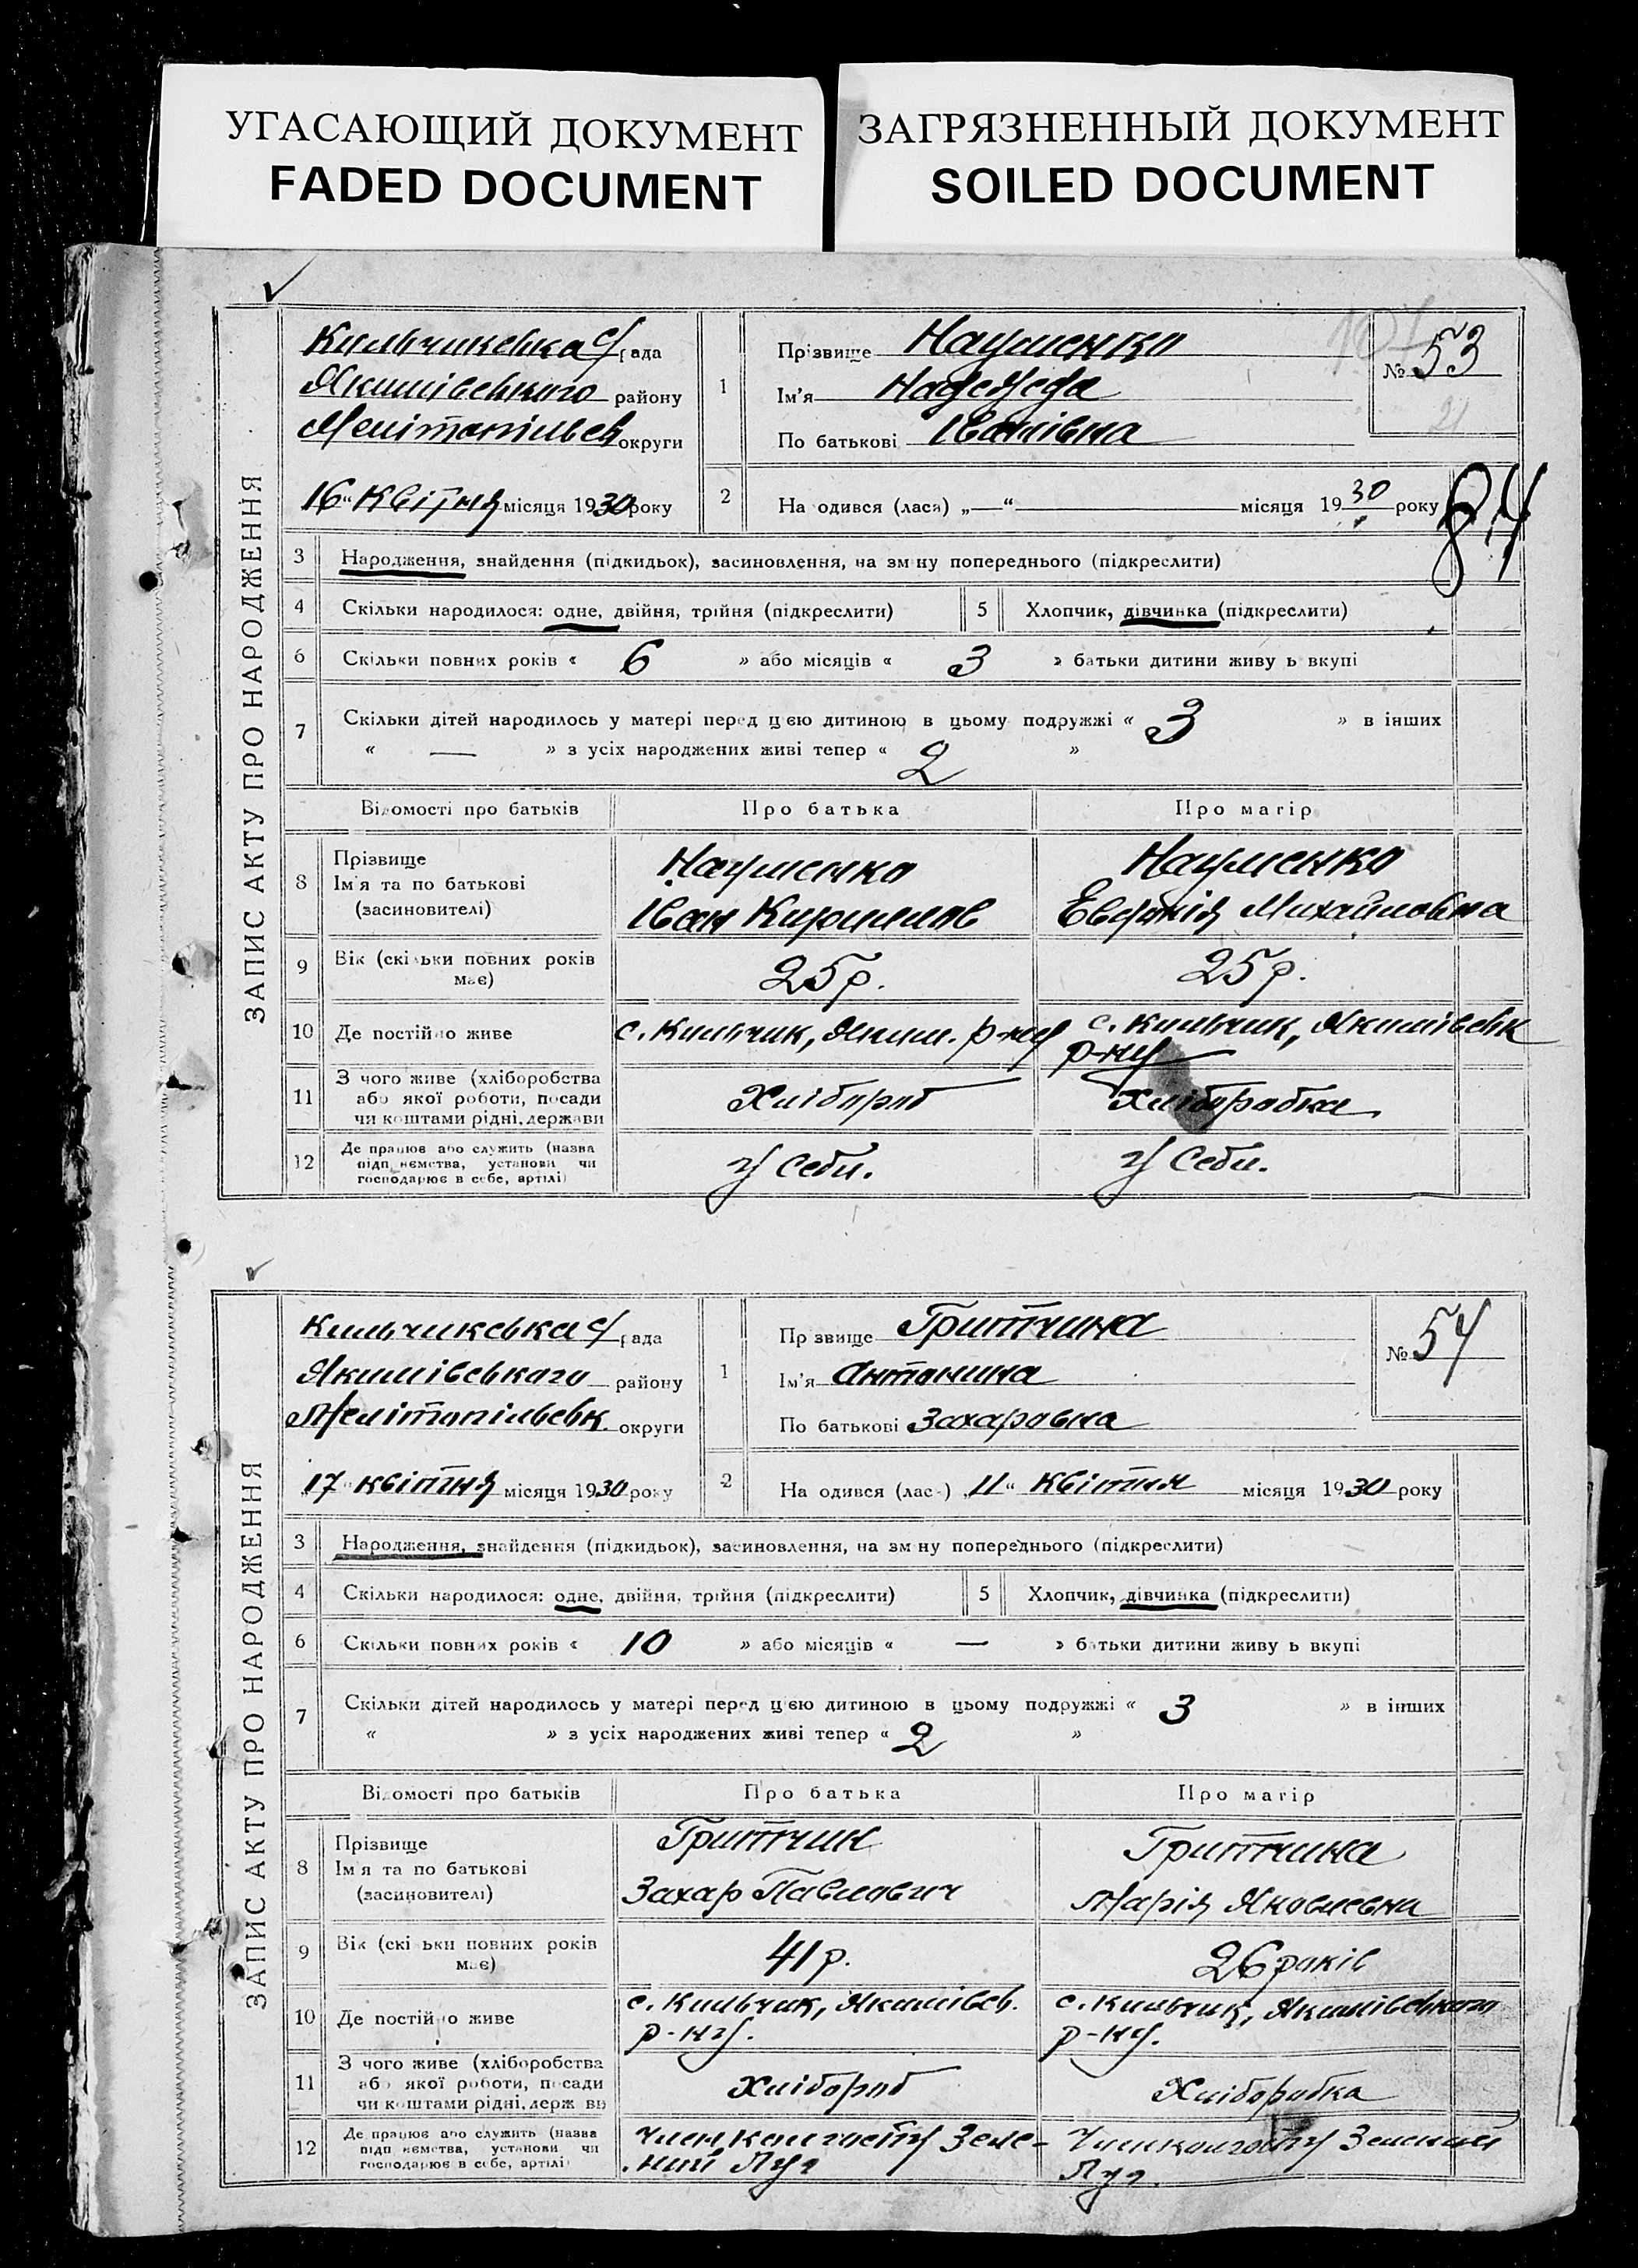 УГАСАЮЩИЙ ДОКУМЕНТ
FADED DOCUMENT
ЗАГРЯЗНЕННЫЙ ДОКУМЕНТ
SOILED DOCUMENT
ЗАПИС АКТУ ПРО НАРОДЖЕННЯ
Кильчикевка с/рада
Якимівського району
Мелітопільськ округи
16 "Квітня місяця 1930 року
1
Прізвище Науменко
Ім'я Надежда
По батькові Іванівна
№ 53
21
84
2
На одився (лася) „—“ місяця 1930 року
3 Народження, знайдення (підкидьок), засиновлення, на зм ну попереднього (підкреслити)
4 Скільки народилося: одне, двійня, трійня (підкреслити) 5 Хлопчик, дівчинка (підкреслити)
6 Скільки повних років « 6 » або місяців « 3 » батьки дитини живу ь вкупі
7 Скільки дітей народилось у матері перед цією дитиною в цьому подружжі « 3 » в інших
« — » з усіх народжених живі тепер « 2 »
Відомості про батьків Про батька Про матір
8 Прізвище
Ім'я та по батькові
(засиновителі)
Науменко
Іван Кирилов
Науменко
Михайловна
9 Вік (скільки повних років
має)
25 р.
25 р.
10 Де постійно живе
с. Кильчик, Яким. р-ну
с. Кильчик, Якимівськ
р-ну
11 З чого живе (хліборобства
або якої роботи, посади
чи коштами рідні, держави
Хлібороб
Хліборобка
12 Де працює або служить (назва
підп ємства, установи чи
господарює в себе, артілі)
У себи.
У себи.
ЗАПИС АКТУ ПРО НАРОДЖЕННЯ
Кильчикська с/рада
Якимівського району
Мелітопільськ. округи
„17 "квітня місяця 1930 року
1
Пр звище Грипчина
Ім'я Антонина
По батькові Захаровна
№ 54
2
На одився (лас ) „11“ Квітня місяця 1930 року
3 Народження, знайдення (підкидьок), засиновлення, на зм ну попереднього (підкреслити)
4 Скільки народилося: одне, двійня, трійня (підкреслити) 5 Хлопчик, дівчинка (підкреслити)
6 Скільки повних років « 10 » або місяців « — » батьки дитини живу ь вкупі
7 Скільки дітей народилось у матері перед цією дитиною в цьому подружжі « 3 » в інших
« » з усіх народжених живі тепер « 2 »
Відомості про батьків Про батька Про матір
8 Прізвище
Ім'я та по батькові
(засиновителі)
Грипчин
Захар Павлович
Грипчина
Марія Яковлевна
9 Вік (скі ьки повних років
має)
41 р.
26 років
10 Де постійно живе
с. Кильчик, Якимівсь.
р-ну.
с. Кильчик, Якимівського
р-ну.
11 З чого живе (хліборобства
або якої роботи, посади
чи коштами рідні, держ ви
Хлібороб
Хліборобка
12 Де працює або служить (назва
підп ємства, установи чи
господарює в себе, артілі)
Член колгоспу Зеле-
ний Луг
Член колгоспу Зелений
Луг.